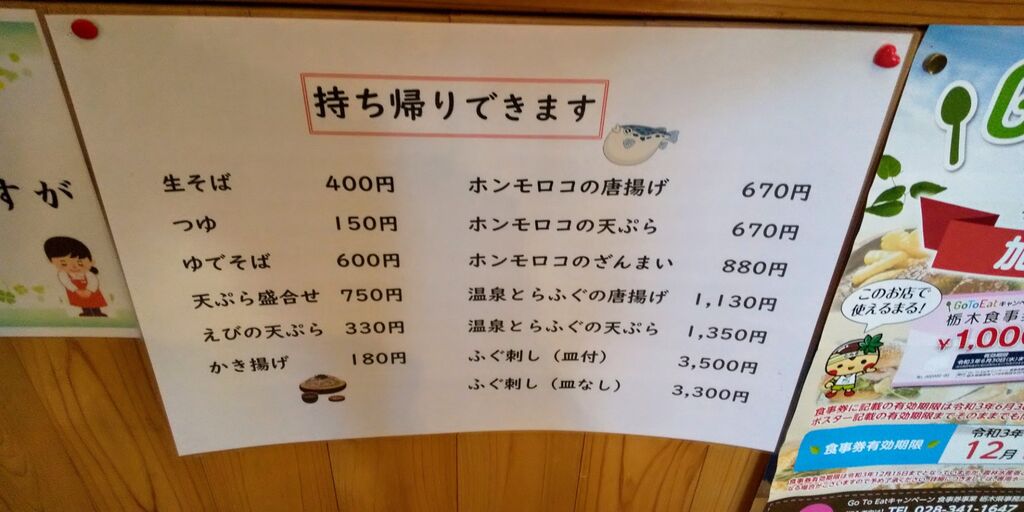 すが
持ち帰りできます
生そば 400円
つゆ 150円
ゆでそば 600円
天ぷら盛合せ 750円
えびの天ぷら 330円
かき揚げ 180円
ホンモロコの唐揚げ 670円
ホンモロコの天ぷら 670円
ホンモロコのざんまい 880円
温泉とらふぐの唐揚げ 1,130円
温泉とらふぐの天ぷら 1,350円
ふぐ刺し（皿付） 3,500円
ふぐ刺し（皿なし） 3,300円
加
このお店で
使えるまる!
GoToEatキャンペーン
栃木食事
￥1,000
有効期限
食事券に記載の有効期限は令和3年6月3
ポスター記載の有効期限までそのままでも
食事券有効期限
令和3年
12月
Go To Eatキャンペーン 食事券事業 栃木県事務局
TEL 028-341-1647